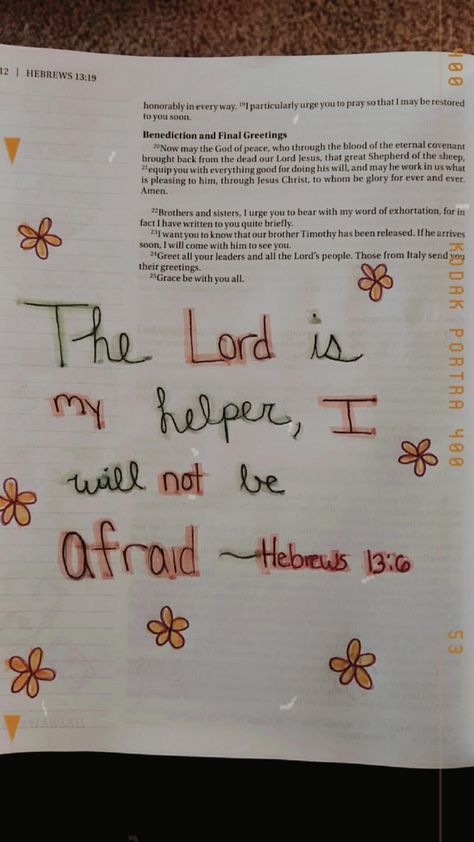 12 | HEBREWS 13:19
honorably in every way. ¹⁹I particularly urge you to pray so that I may be restored
to you soon.
Benediction and Final Greetings
²⁰Now may the God of peace, who through the blood of the eternal covenant
brought back from the dead our Lord Jesus, that great Shepherd of the sheep,
²¹equip you with everything good for doing his will, and may he work in us what
is pleasing to him, through Jesus Christ, to whom be glory for ever and ever.
Amen.
²²Brothers and sisters, I urge you to bear with my word of exhortation, for in
fact I have written to you quite briefly.
²³I want you to know that our brother Timothy has been released. If he arrives
soon, I will come with him to see you.
²⁴Greet all your leaders and all the Lord's people. Those from Italy send you
their greetings.
²⁵Grace be with you all.
The Lord is
my helper, I
will not be
afraid ~Hebrews 13:6
400
KODAK PORTRA 400
53